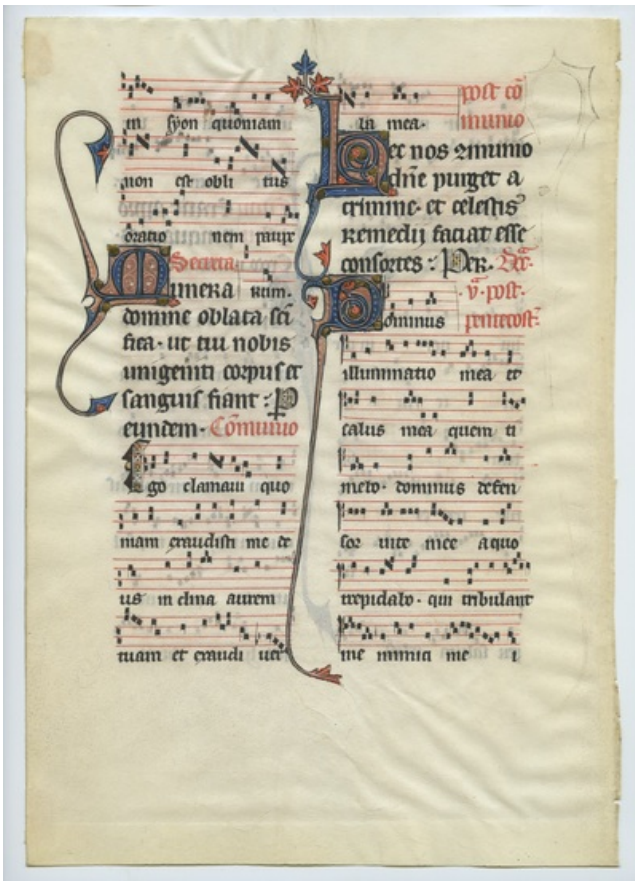 in syon quoniam
non est obli tus
oratio nem paupe
Secreta.
Munera num.
domine oblata sci
fica. ut tui nobis
unigeniti corpus et
sanguis fiant : P
eundem. Cōmunio
Ego clamavi quo
niam exaudisti me de
us in clina aurem
tuam et exaudi ver
ba mea. post cō
munio
Hec nos 9munio
dñe purget a
crimine. et celestis
remedii faciat esse
consortes : Per.
v. post.
Dominus pentecost.
illuminatio mea et
salus mea quem ti
mebo. dominus defen
sor vite mee a quo
trepidabo. qui tribulant
me inimici me i